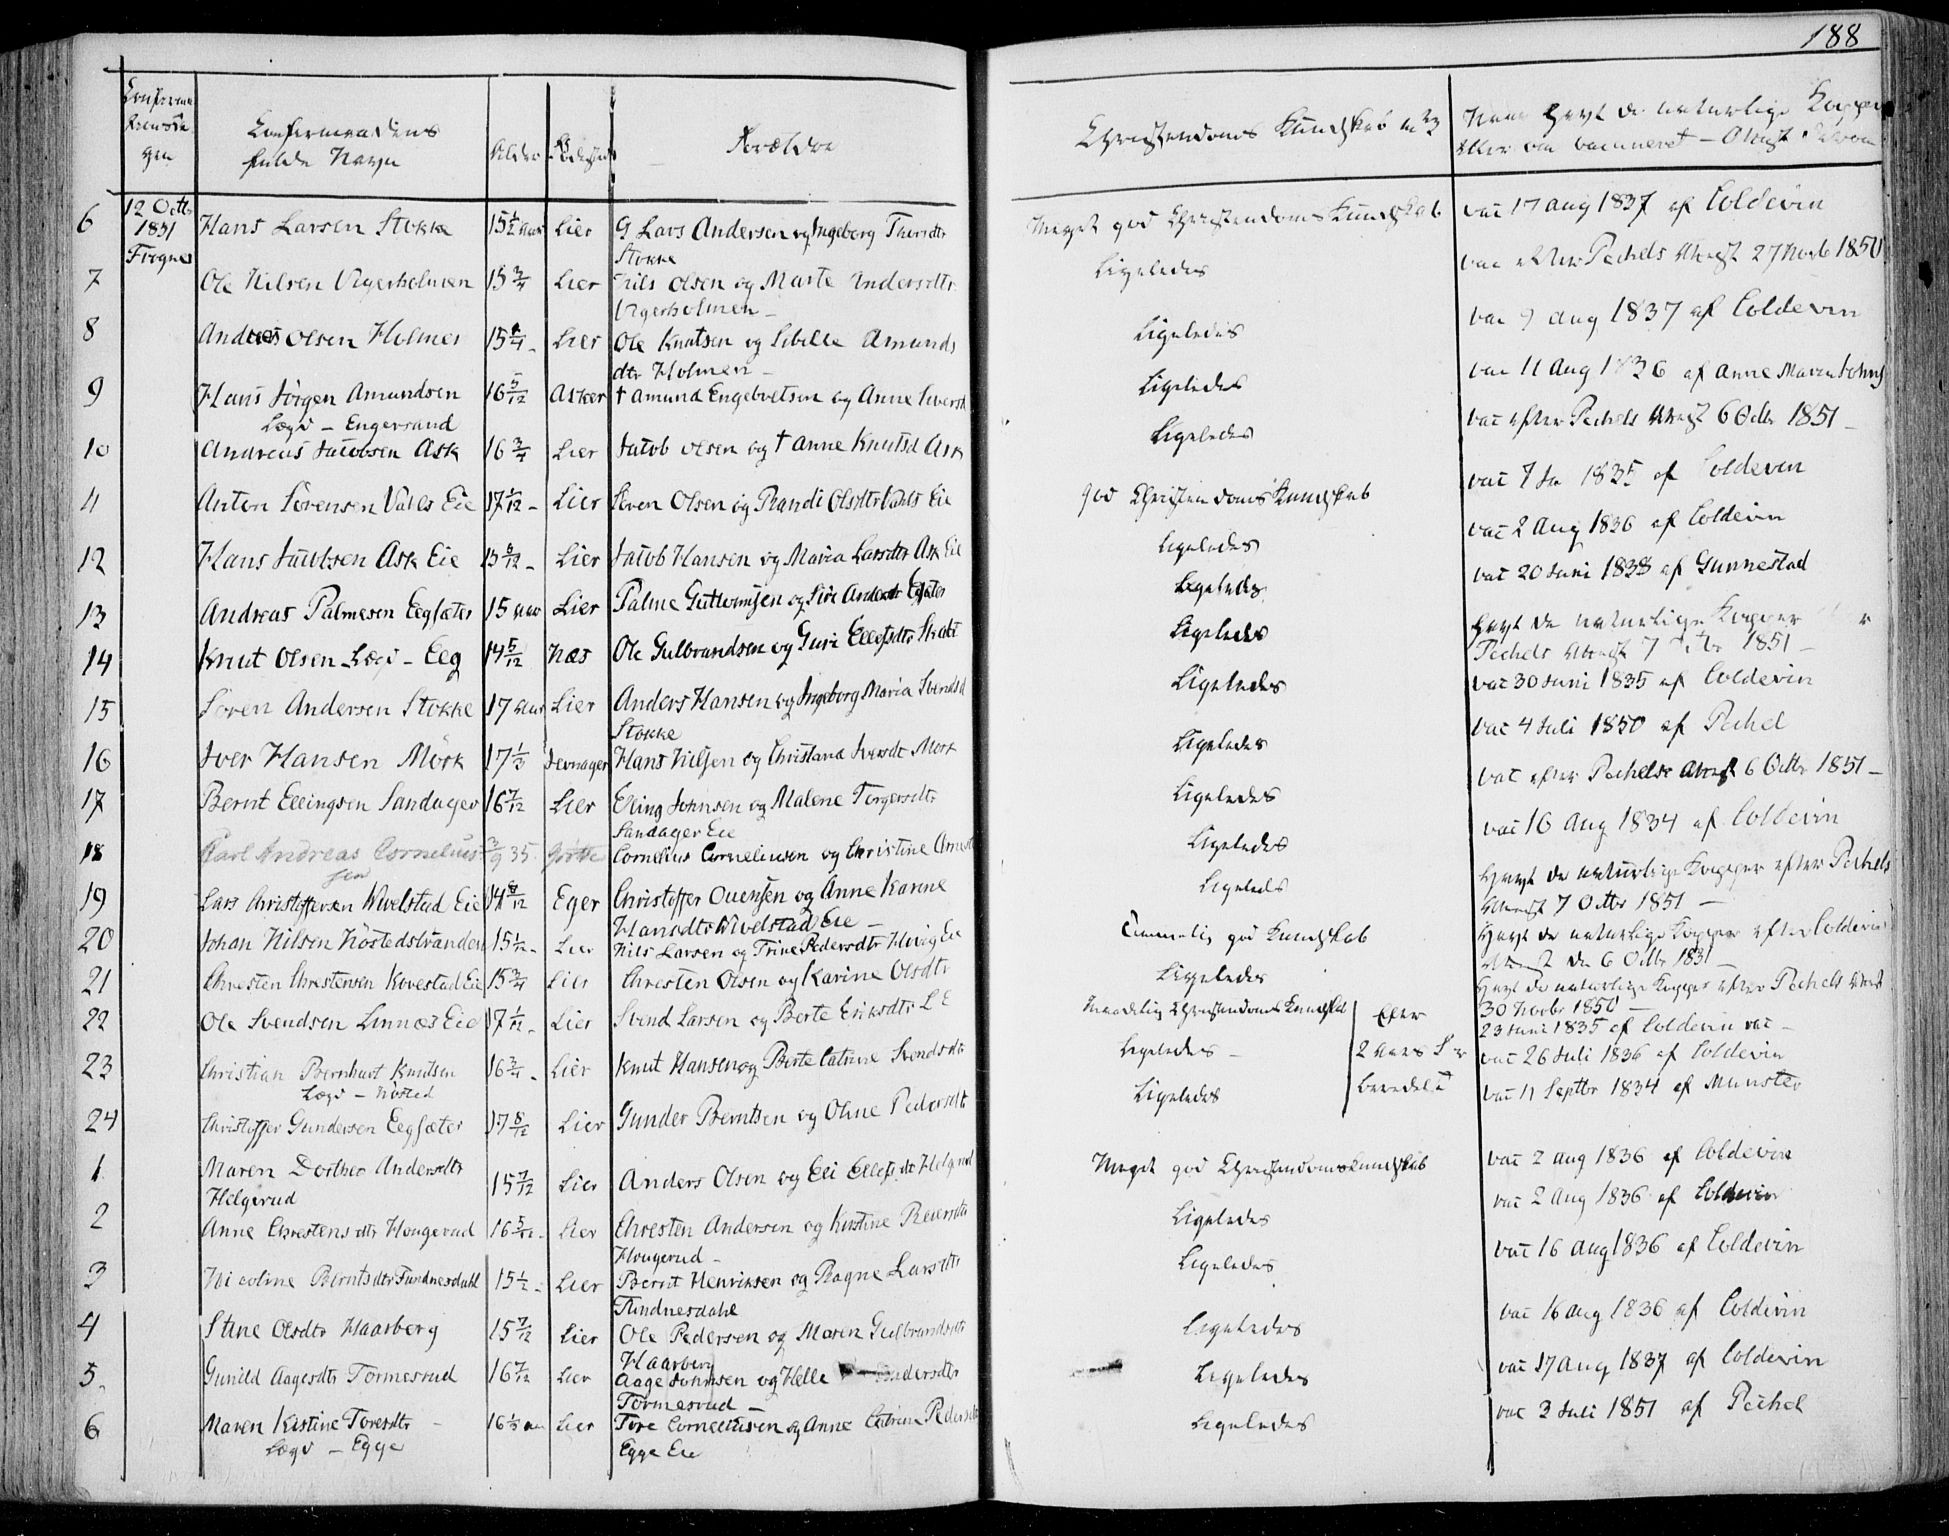 188
Confirma
tionsda
gen
Confirmandens
fulde Navn
Alder
Fødested
Forældre
Christendoms Kundskab
Naar havt de naturlige Kopper
eller er vaccineret
12 Octbr
1851
Frogner
6 Hans Larsen Stokke 15 1/2 Aar Lier G Lars Andersen og Ingeborg Thorsdtr
Stokke
Meget god Christendoms Kundskab vac 17 Aug 1837 af Coldevin
7 Ole Nilsen Vigerholmen 15 3/4 Lier Nils Olsen og Marte Andersdtr
Vigerholmen
Ligeledes vac efter Pechels Attest 27 Novb 1850
8 Andreas Olsen Holmen 15 1/4 Lier Ole Knutsen og Sibille Amunds
dtr Holmen
Ligeledes vac 9 aug 1837 af Coldevin
9 Hans Jörgen Amundsen 16 5/12 Asker † Amund Engebretsen og Anne Iversd
Lægd - Engersand
Ligeledes vac 11 Aug 1836 af Anne Maren
10 Andreas Jacobsen Ask 16 3/4 Lier Jacob Olsen og † Anne Knutsd Ask
Ligeledes vac efter Pechels Attest 6 Octbr 1851
11 Anton Sörensen Valls Eie 17 1/12 Lier Sören Olsen og Randi Olsdtr Valls Eie
god Christendoms Kundskab vac 7 1835 af Coldevin
12 Hans Jacobsen Ask Eie 15 Lier Jacob Hansen og Maria Larsdtr Ask Eie
Ligeledes vac 2 Aug 1836 af Coldevin
13 Andreas Palmesen Eegsæter 15 Aar Lier Palme Guttormsen og Siri Andersdtr Egsæter
Ligeledes vac 20 Juni 1838 af Gunnestad
14 Knut Olsen Lægd - Eeg 14 5/12 Næs Ole Gulbrandsen og Guri Ellefsdtr
Ligeledes havt de naturlige Kopper
Pechels Attest 7 Octbr 1851
15 Sören Andersen Stokke 17 Aar Lier Anders Hansen og Ingeborg Maria Svendsd
Stokke
Ligeledes vac 30 Juni 1835 af Coldevin
16 Iver Hansen Mörk 17 1/3 Jevnager Hans Nilsen og Christiana Iversdt Mörk
Ligeledes vac 4 Juli 1850 af Pechel
17 Bernt Ellingsen Sandager 16 7/12 Lier Elling Johnsen og Malene Torgersdtr
Sandager Eie
Ligeledes vac efter Pechels Attest 6 Octbr 1851
18 Carl Andreas Cornelius 3/9 35 Cornelius Corneliusen og Christine
sen
Ligeledes vac 16 Aug 1834 af Coldevin
19 Lars Christoffersen Wivelstad Eie 14 Eger Christoffer Ouensen og Anne Karine
Hansdtr Wivelstad Eie
Ligeleds Havt de naturlige Kopper efter Pechels
Attest 7 Octbr 1851
20 Johan Nilsen Nöstedstranden 15 1/2 Lier Nils Larsen og Trine Pedersdtr Hörig Eie
Temmelig god Kundskab Havt de naturlige Kopper efter Coldevins
Attest de 6 Octbr 1851
21 Christen Christensen Kovestad Eie 15 3/4 Lier Christen Olsen og Karine Olsdtr
Ligeledes Havt de naturlige Kopper efter Pechels Attest
30 Novbr 1850
22 Ole Svendsen Linnæs Eie 17 1/12 Lier Svend Larsen og Berte Eriksdtr L E
Maadelig Christendoms Kundskab 23 Juni 1835 af Coldevin vac
23 Christian Bernhart Knutsen 16 3/4 Lier Knut Hansen og Berte Catrine Svendsdtr
Lægd - Nösted
Ligeledes vac 26 Juli 1836 af Coldevin
24 Christoffer Gundersen Eegsæter 17 8/12 Lier Gunder Berntsen og Oline Pedersdtr
Ligeledes vac 11 Septbr 1834 af Munster
Efter
2 Aars
1 Maren Dorthea Andersdtr 15 7/12 Lier Anders Olsen og Eli Ellefsdtr Helgerud
Helgerud
Meget god Christendomskundskab vac 2 aug 1836 af Coldevin
2 Anne Christensdtr Hougerud 16 5/12 Lier Christen Andersen og Kirstine Reiersdtr
Hougerud
Ligeledes vac 2 Aug 1836 af Coldevin
3 Nicoline Berntsdtr Tundnesdahl 15 1/2 Lier Bernt Henriksen og Ragne Larsdtr
Tundnesdahl
Ligeledes vac 16 Aug 1836 af Coldevin
4 Stine Olsdtr Haarberg 15 7/12 Lier Ole Pedersen og Maren Gulbrandsdtr
Haarberg
Ligeledes vac 16 aug 1836 af Coldevin
5 Gunild Aagesdtr Tormesrud 16 7/12 Lier Aage Johnsen og Helle Andersdtr
Tormesrud
Ligeledes vac 17 Aug 1837 af Coldevin
6 Maren Kirstine Toresdtr 16 1/3 Aar Lier Tore Corneliusen og Anne Catrine Pedersdtr
Lægd - Egge Egge Eie
Ligeledes vac 3 Juli 1851 af Pechel